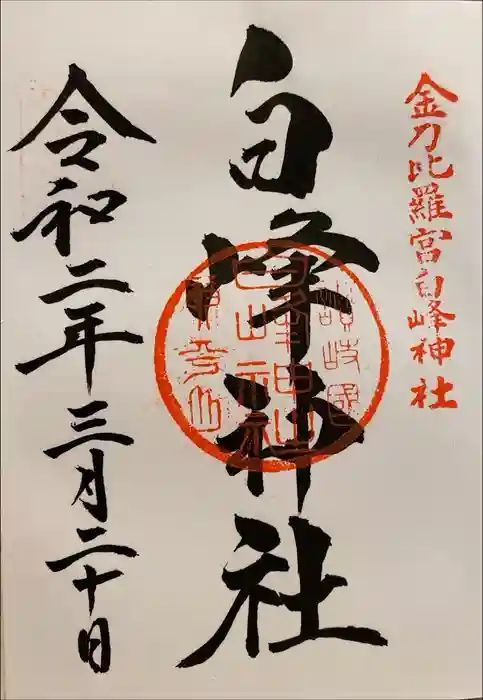 金刀比羅宮白峰神社
白峰神社
讃岐國
令和二年三月二十日